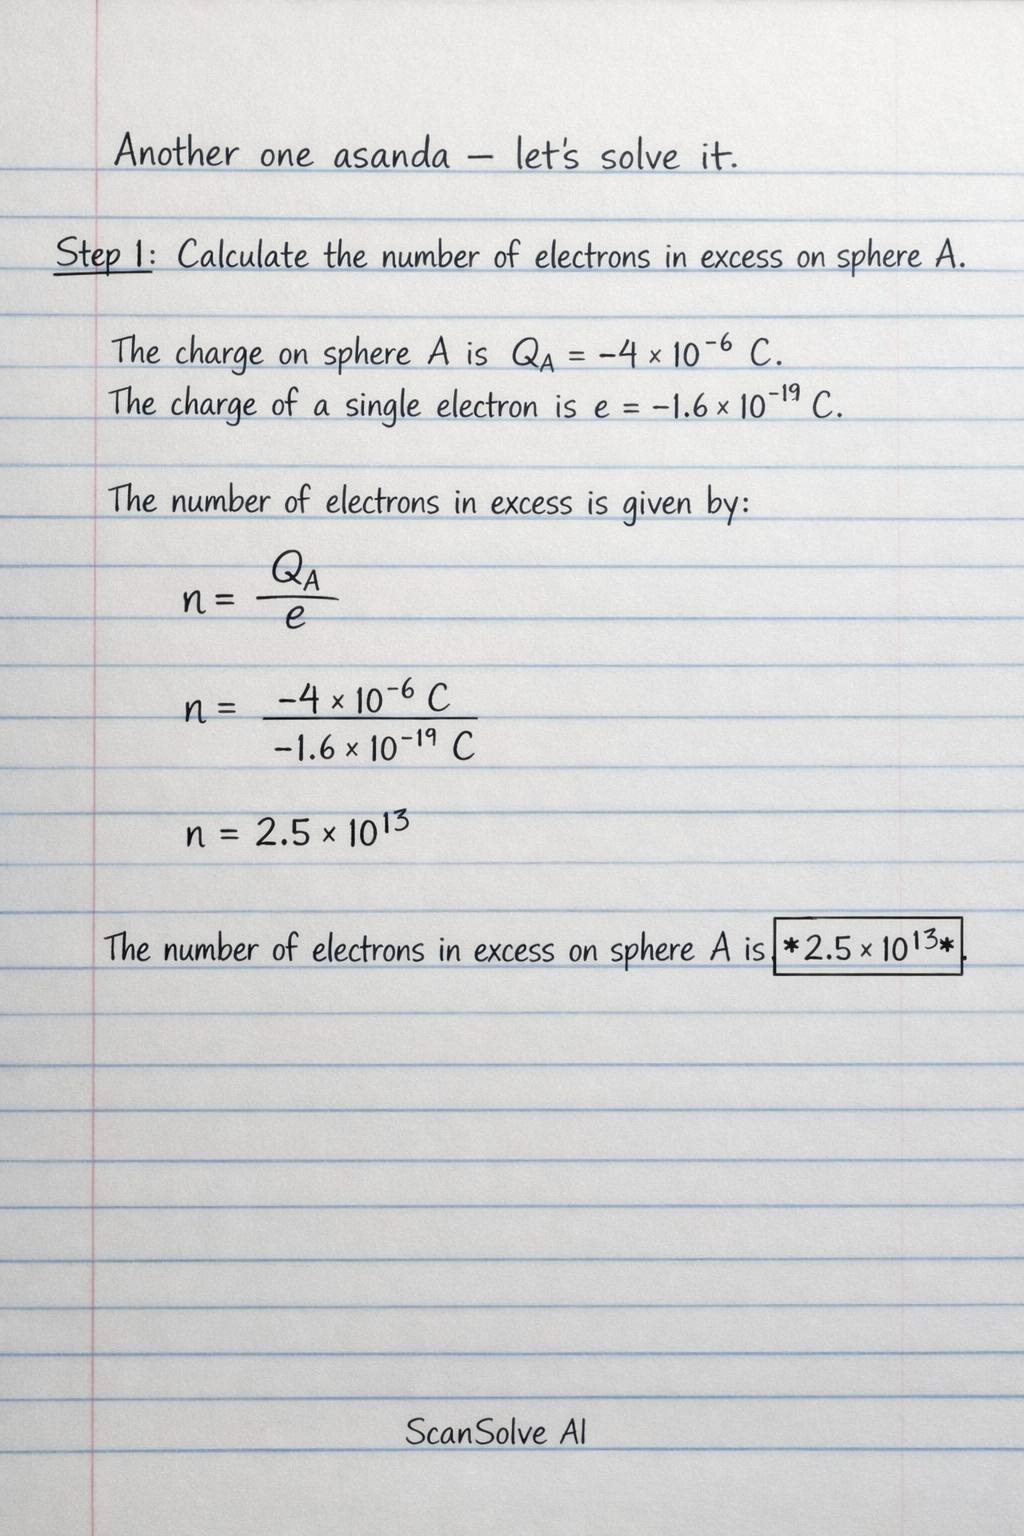 Another one asanda – let's solve it.
Step 1: Calculate the number of electrons in excess on sphere A.
The charge on sphere A is Q_A = −4 × 10⁻⁶ C.
The charge of a single electron is e = −1.6 × 10⁻¹⁹ C.
The number of electrons in excess is given by:
n = Q_A / e
n = −4 × 10⁻⁶ C / −1.6 × 10⁻¹⁹ C
n = 2.5 × 10¹³
The number of electrons in excess on sphere A is *2.5 × 10¹³*.
ScanSolve AI